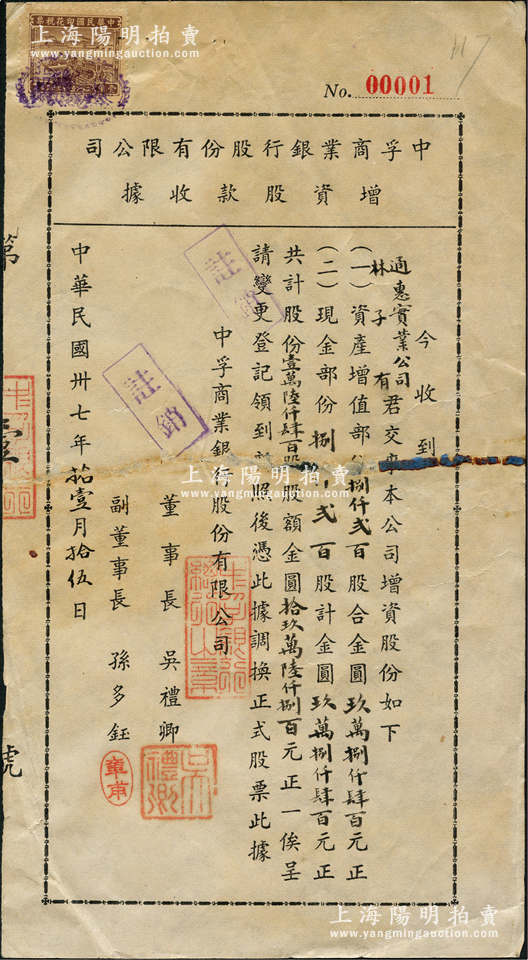 上海陽明拍賣
www.yangmingauction.com
中華民國印花稅票
No. 00001
117
中孚商業銀行股份有限公司
增資股款收據
今收到
通惠實業公司
林子有君交來本公司增資股份如下
(一)資產增值部份捌仟弍百股合金圓玖萬捌仟肆百元正
(二)現金部份捌仟弍百股計金圓玖萬捌仟肆百元正
共計股份壹萬陸仟肆百股股額金圓拾玖萬陸仟捌百元正一俟呈
請變更登記領到執照後憑此據調換正式股票此據
中孚商業銀行股份有限公司
董事長 吳禮卿
副董事長 孫多鈺
中華民國卅七年拾壹月拾伍日
第壹號
註銷
註銷
吳禮卿
章甫
上海陽明拍賣
www.yangmingauction.com
上海陽明拍賣
www.yangmingauction.com